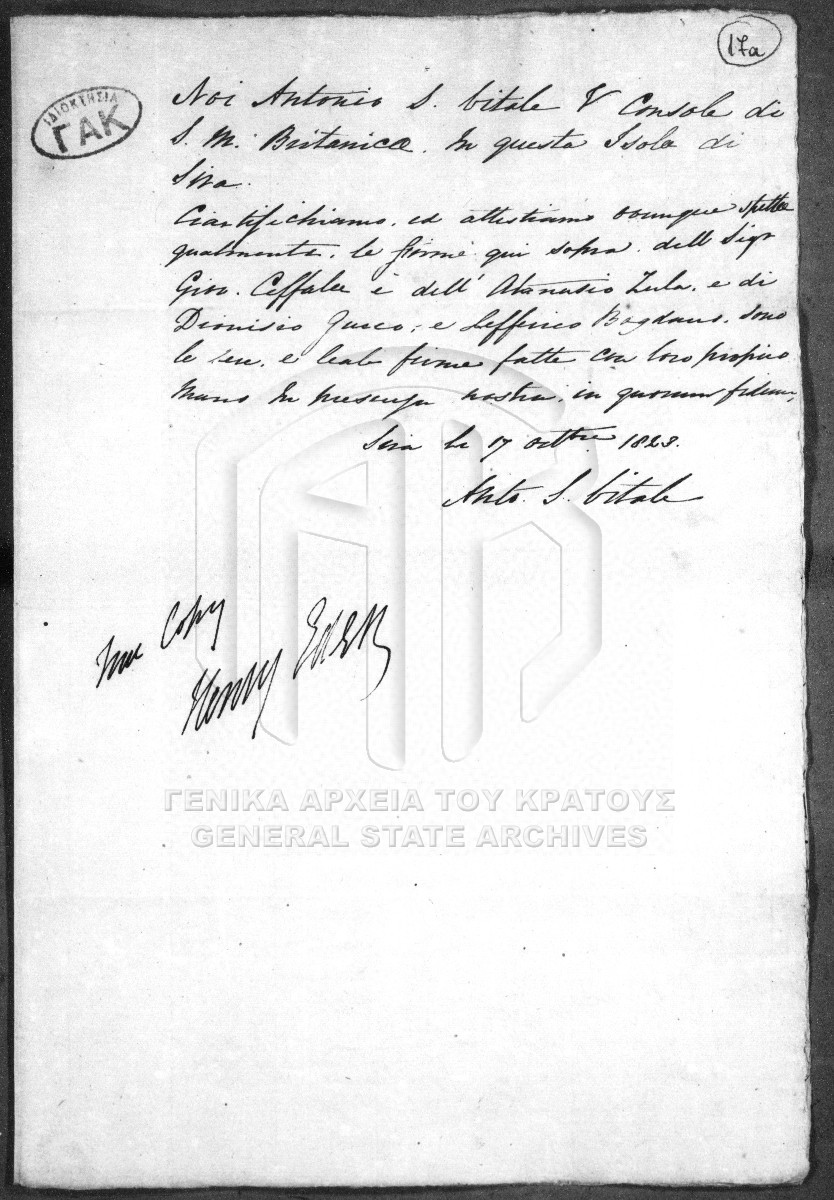 17a
ΙΔΙΟΚΤΗΣΙΑ
ΓΑΚ
Noi Antonio S. Vitale V Console di
S. M. Britanica. In questa Isola di
Sira.
Ciartifichiamo, ed attestiamo ovunque spetta
qualmente, le firme qui sopra dell Sigr
Giov. Ceffala e dell' Atanasio Zula, e di
Dionisio e Bogdano, sono
le e leale firme fatte con loro propио
Mano In presenza nostra, in quorum fidem,
Sira li 17 ottbre 1823.
Anto. S. Vitale
True Copy
Henry
ΓΕΝΙΚΑ ΑΡΧΕΙΑ ΤΟΥ ΚΡΑΤΟΥΣ
GENERAL STATE ARCHIVES